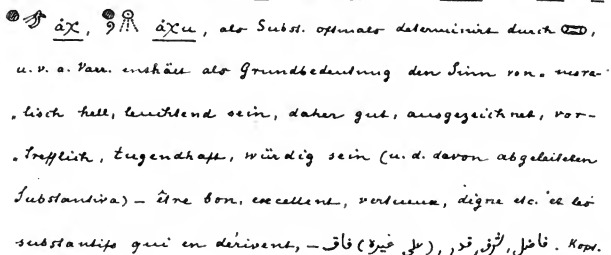 ȧχ, ȧχu, als Subst. oftmals determinirt durch,
u. v. a. Varr. enthält als Grundbedeutung den Sinn von „mora-
„lisch hell, leuchtend sein, daher gut, ausgezeichnet, vor-
„trefflich, tugendhaft, würdig sein (u. d. davon abgeleiteten
Substantiva) – être bon, excellent, vertueux, digne etc. et les
substantifs qui en dérivent, – فاق (على غيره), قدر, شرف, فاضل. Kopt.